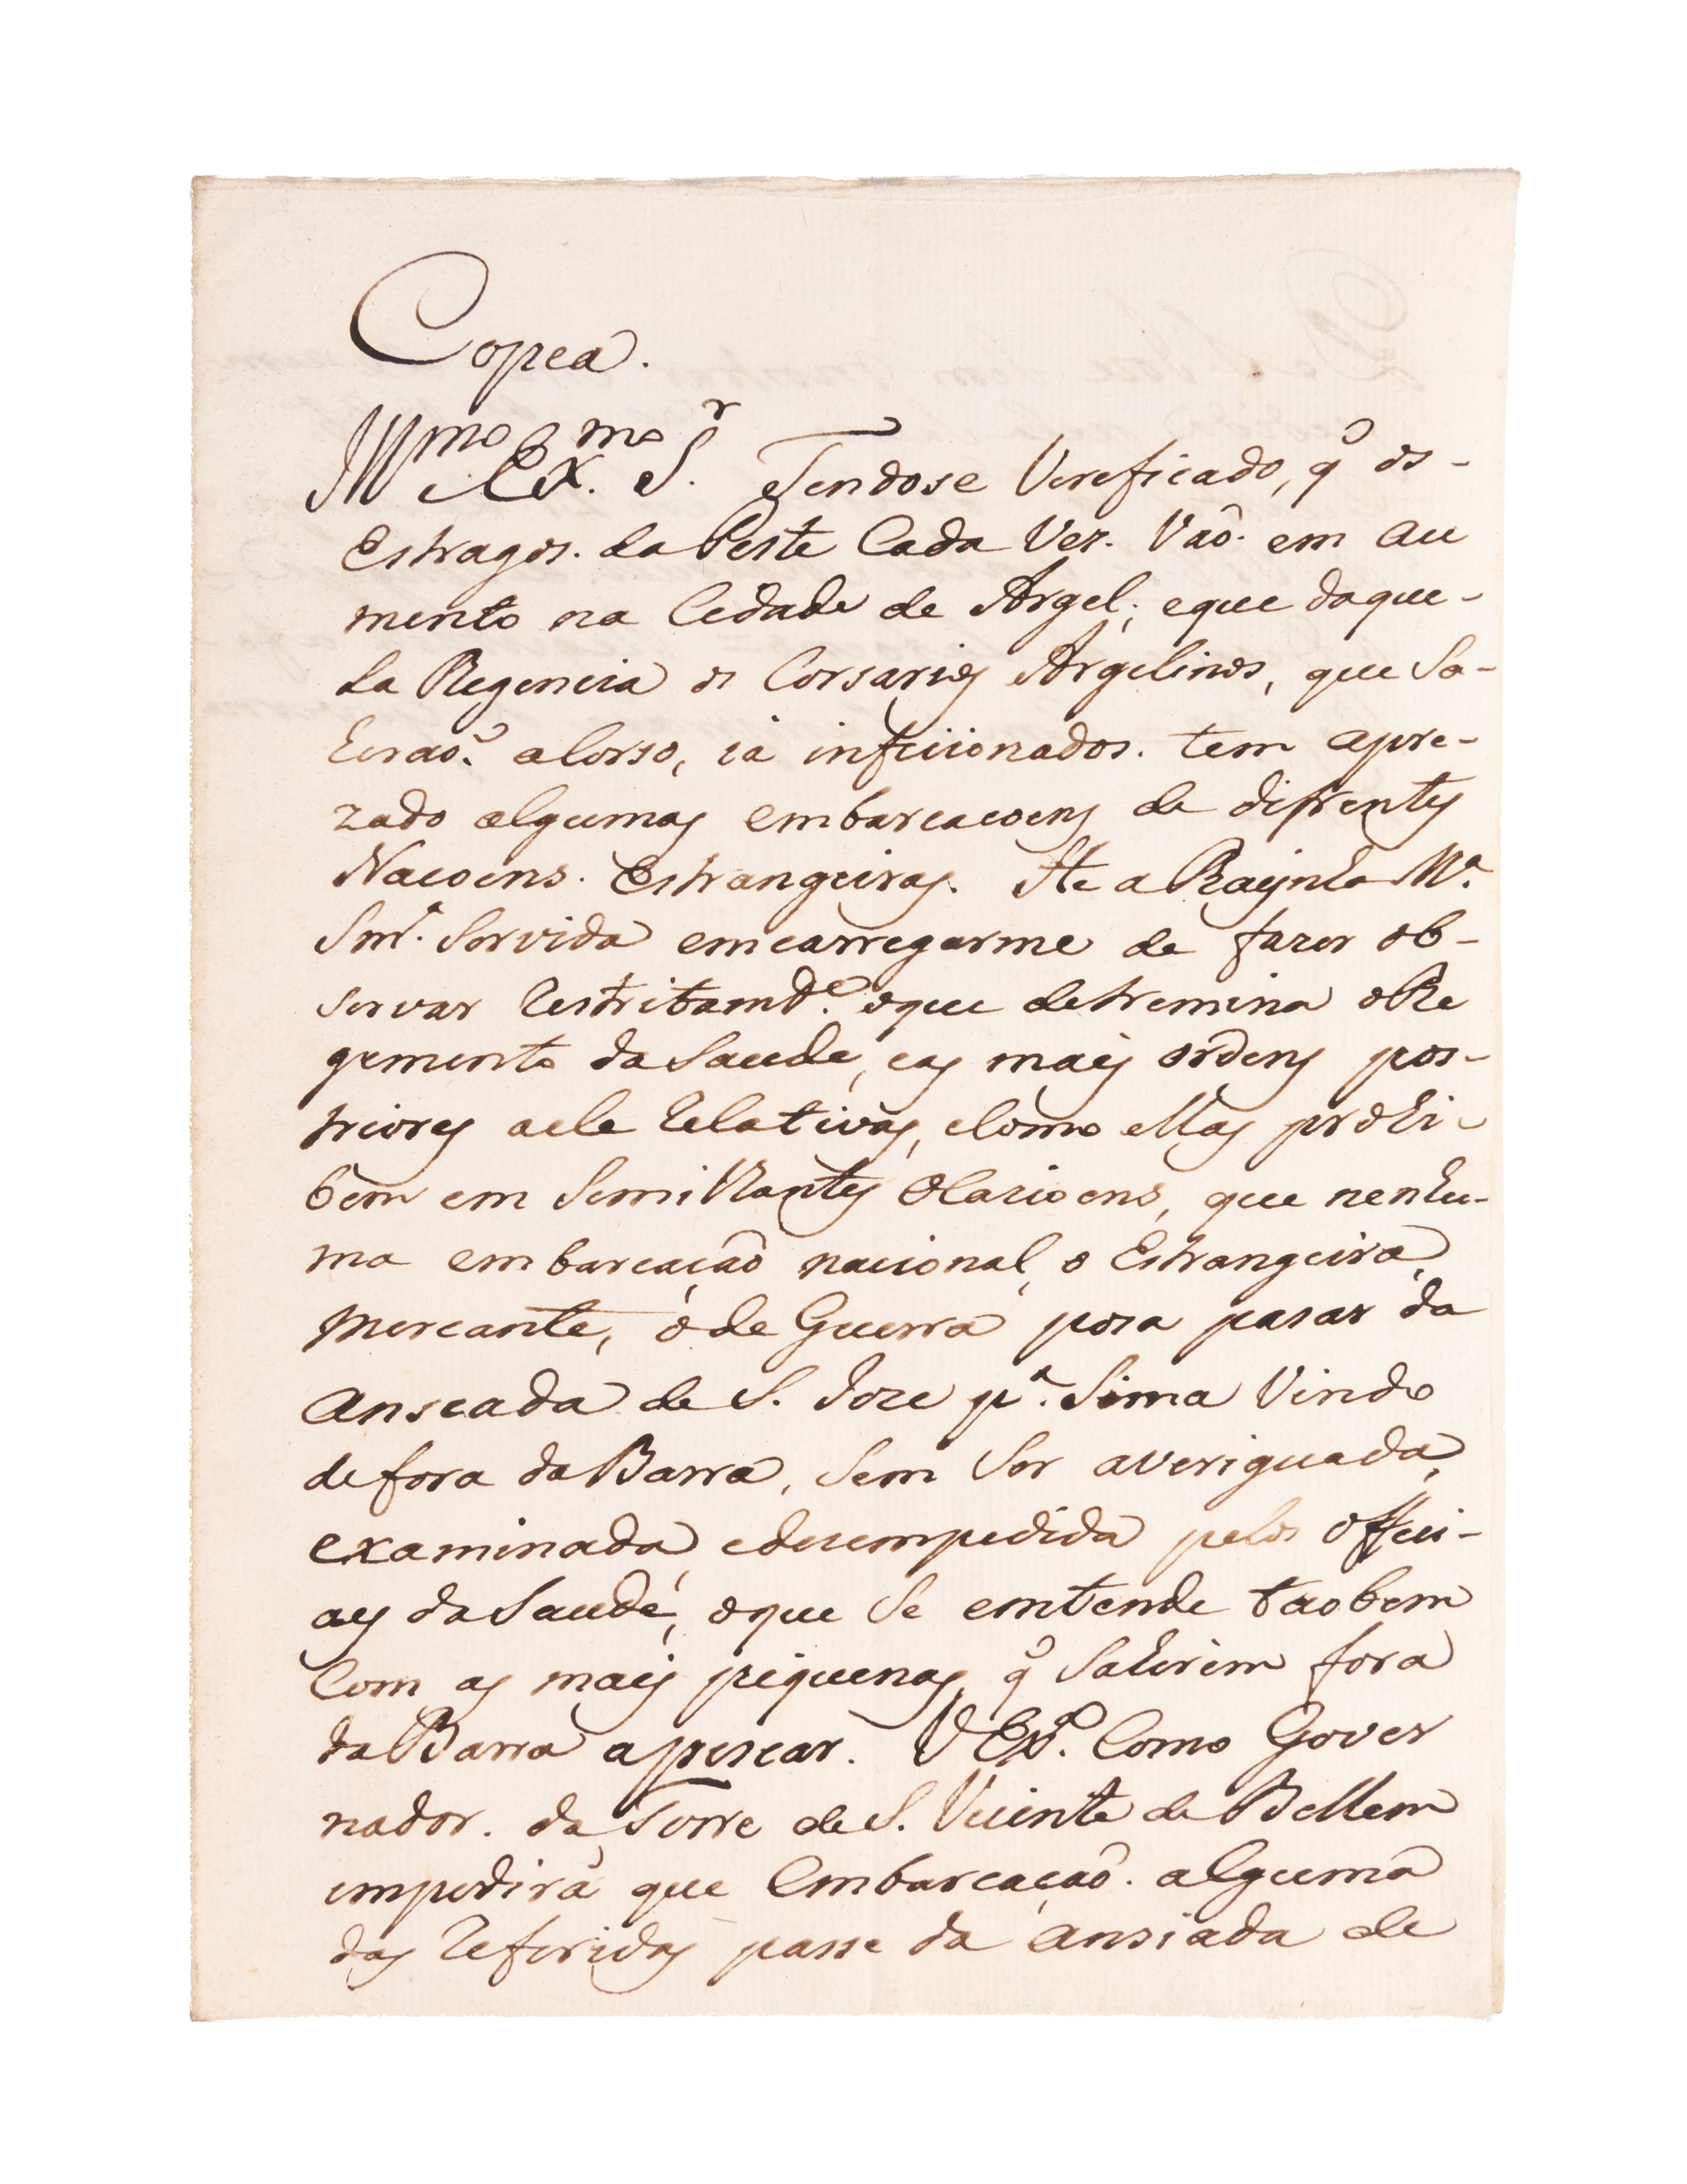 Copea.
Illmo e Exmo Sr. Tendose Vereficado, q̃ os-
Estragos. da Peste Cada Vez. Vaõ. em au
mento na Cedade de Argel; eque daque-
la Regencia os Corsarios Argelinos, que Sa-
hiraõ. a Corso, ia infeiionados. tem apre-
zado algumas embarcacoens de difrentes
Nacoens. Estrangeiras. He a Raynha Ma.
Snra. Servida emcarregarme de fazer ob-
servar Restritamde. oque detremina o Re
gemento da Saude, eas mais ordens pos-
triores aele Relativas, eComo ellas prohi-
bem em Semilhantes Ocazioens, que nenhu-
ma embarcaçaõ nacional, o Estrangeira,
Mercante, ó de Guerra posa pasar da
Anseada de S. Joze pa. Sima Vindo
defora da Barra, Sem Ser averiguada,
examinada, edezempedida pelos offici-
ais da Saude, oque Se emtende taobem
Com as mais piquenas, q̃ Sahirem fora
da Barra apescar. V Exa. Como Gover
nador. da Torre de S. Vicente de Bellem
impedirá que Embarcaçaõ. alguma
das Referidas passe da ansiada de